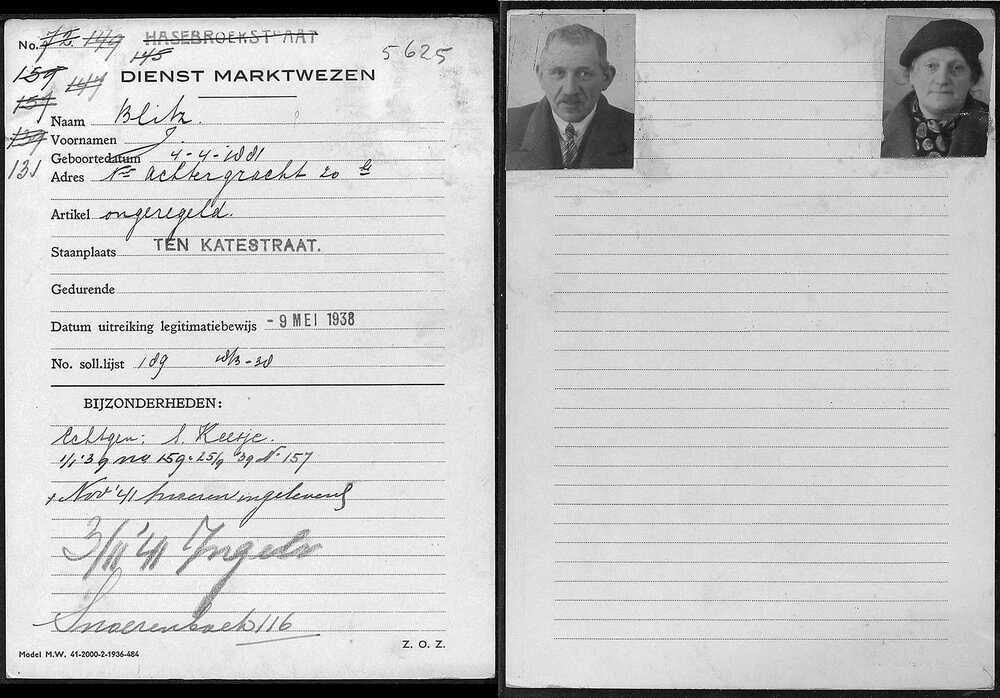 No. 72. 149 HASEBROEKSTRAAT
145
5625
159 147
DIENST MARKTWEZEN
157
Naam Blitz.
139
Voornamen J.
Geboortedatum 4-4-1881
131
Adres Nwe Achtergracht 20 hs
Artikel ongeregeld.
Staanplaats TEN KATESTRAAT.
Gedurende
Datum uitreiking legitimatiebewijs - 9 MEI 1938
No. soll.lijst 189 18/3-38
BIJZONDERHEDEN:
Echtgen: S. Keesje.
1/1 '39 no 159. 25/9 '39 No 157
+ Nov '41 snoeren ingeleverd
3/11 '41 Ingelv
Snoerenboek 116
Z. O. Z.
Model M.W. 41-2000-2-1936-484